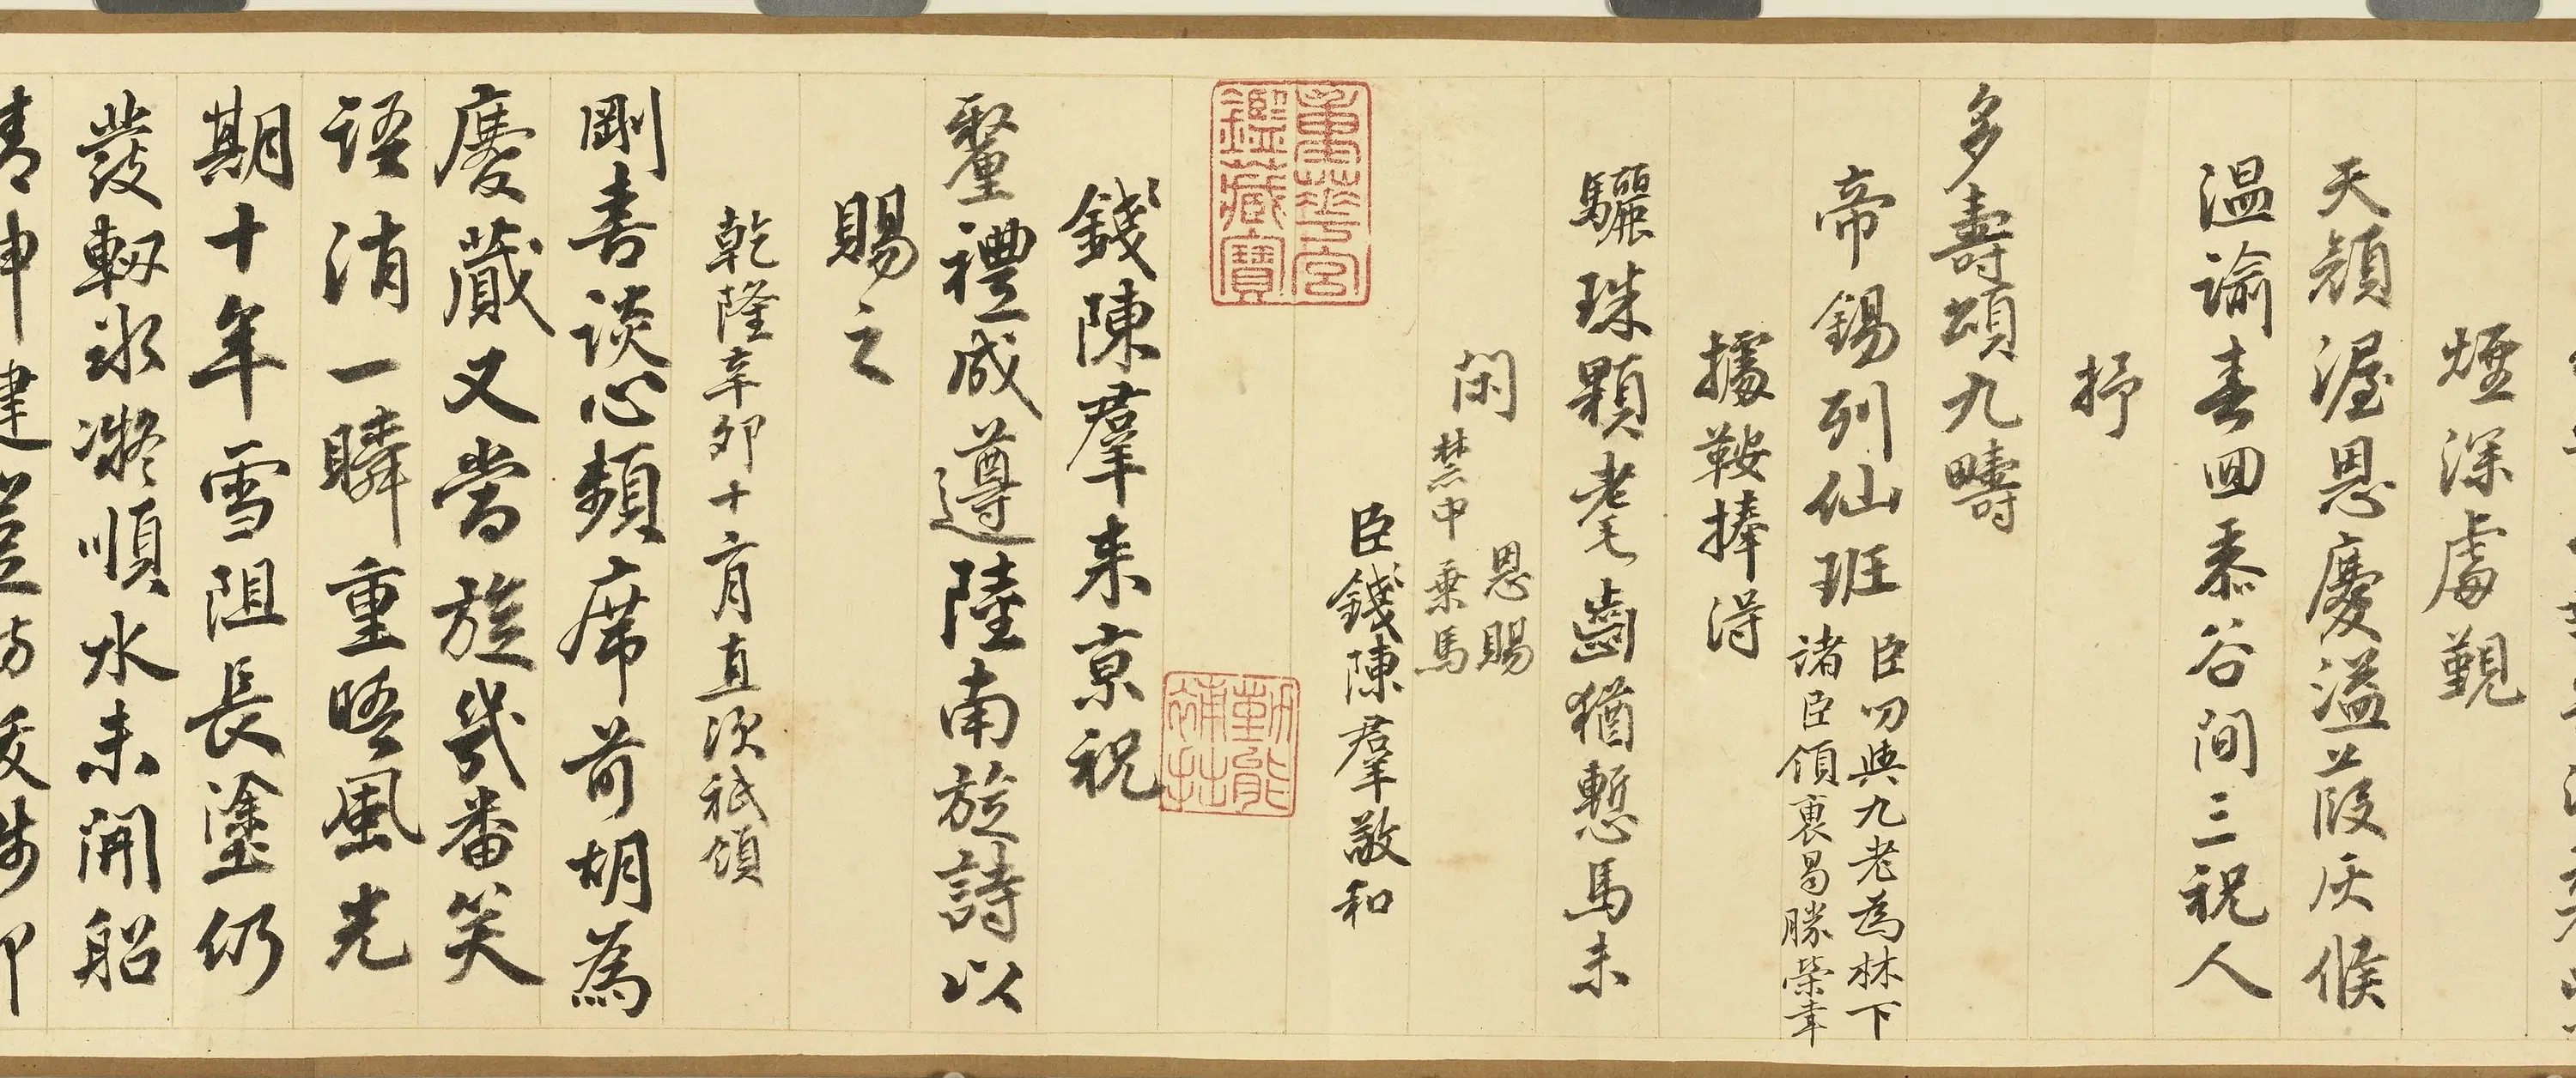 煙深處覲
天顏渥恩慶溢葭灰候
溫諭春回黍谷間三祝人
抒
多壽頌九疇
帝錫列仙班
臣叨與九老為林下
諸臣領裏曷勝榮幸
據鞍捧得
驪珠顆老毛齒猶慙馬未
閑
恩賜
禁中乗馬
臣錢陳羣敬和
重華宮
鑑藏寶
勤能
補拙
錢陳羣来京祝
釐禮成遵陸南旋詩以
賜之
乾隆辛卯十二月直次祇領
剛喜談心頻席前胡為
慶蕆又當旋幾番笑
語消一瞬重晤風光
期十年雪阻長塗仍
發軔氷凝順水未開船